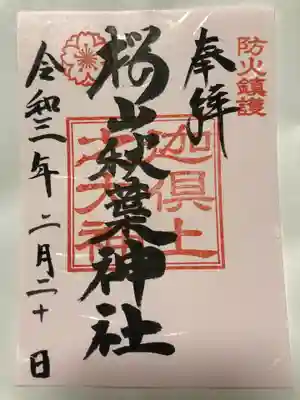 防火鎮護
奉拝
迦倶土
大神
桜山秋葉神社
令和三年二月二十日